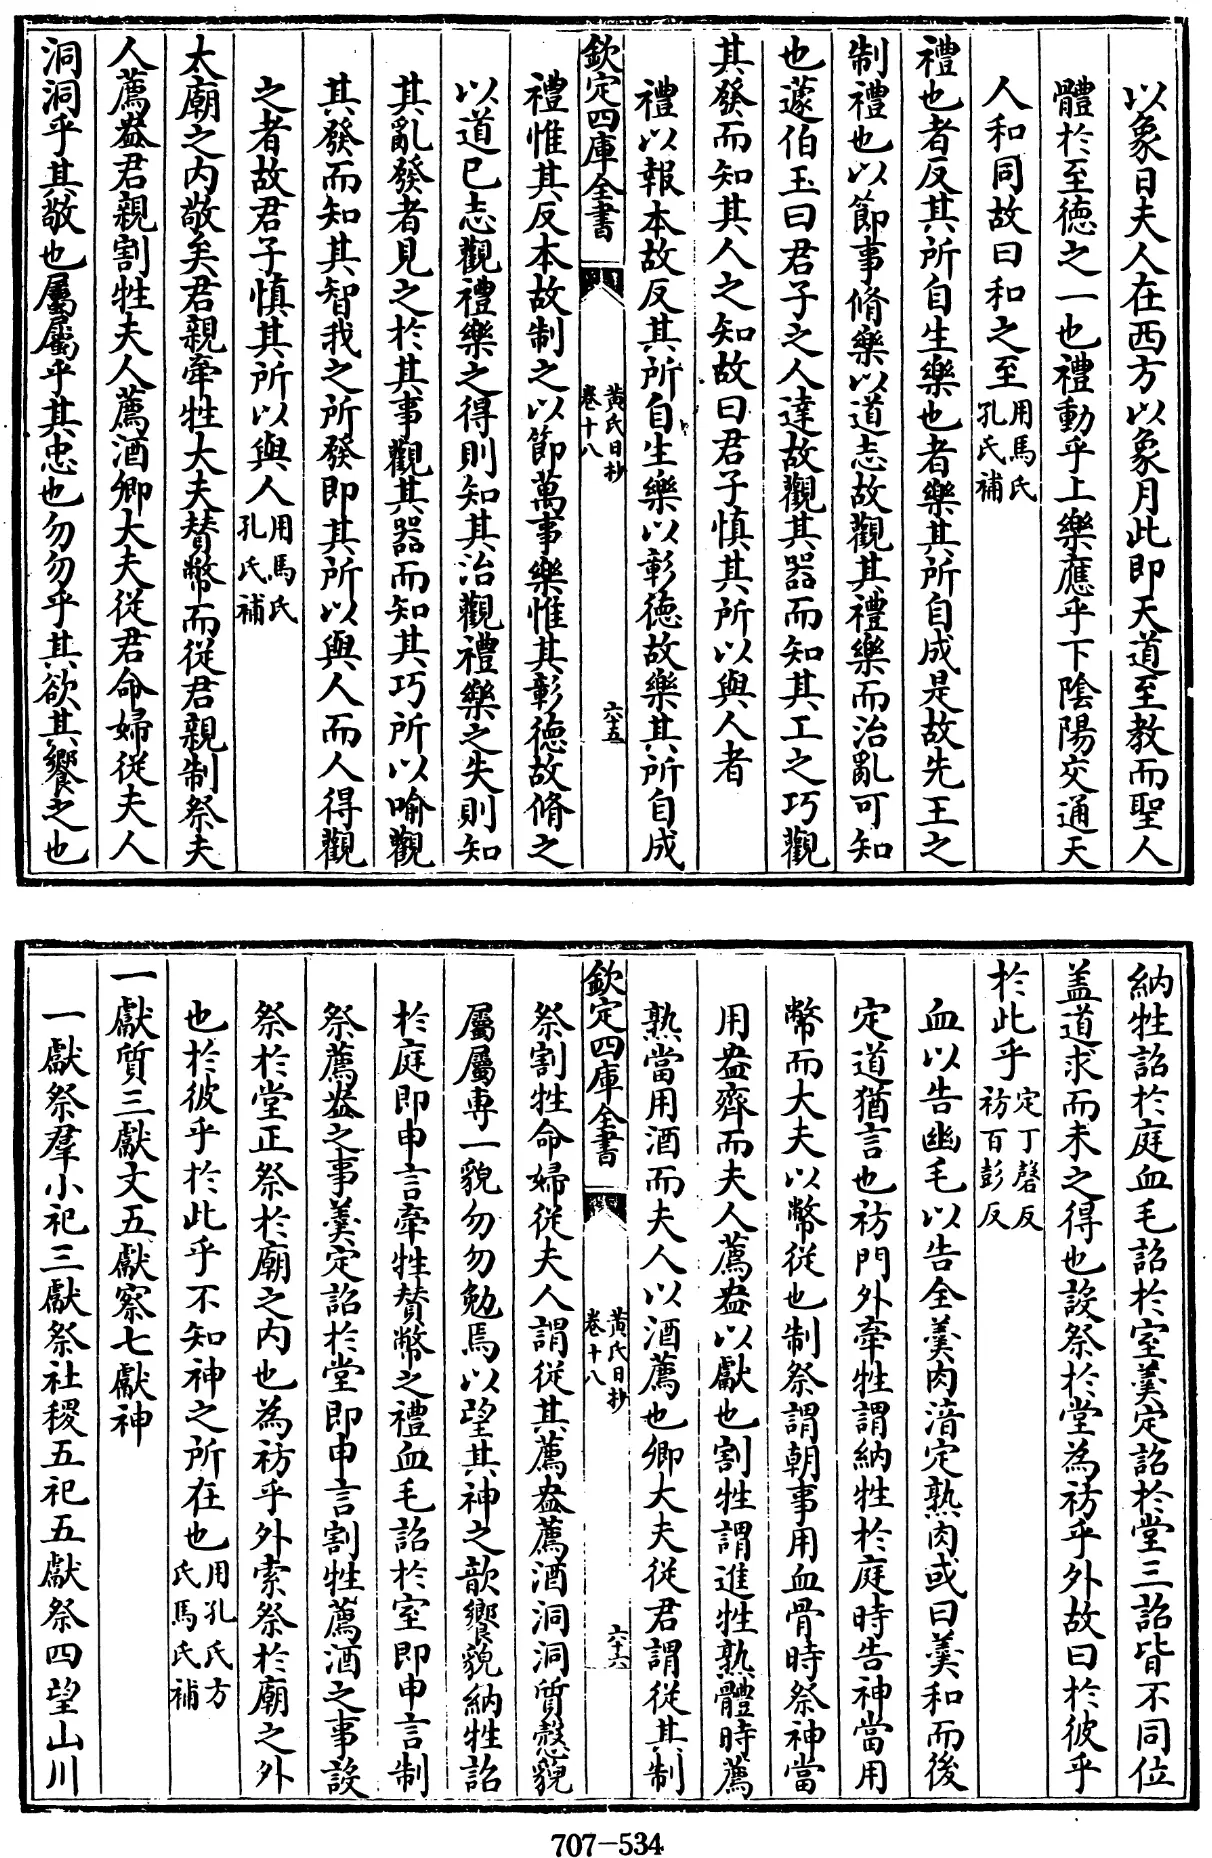 以象日夫人在西方以象月此即天道至教而聖人
體於至德之一也禮動乎上樂應乎下陰陽交通天
人和同故曰和之至用馬氏孔氏補
禮也者反其所自生樂也者樂其所自成是故先王之
制禮也以節事脩樂以道志故觀其禮樂而治亂可知
也蘧伯玉曰君子之人達故觀其器而知其工之巧觀
其發而知其人之知故曰君子慎其所以與人者
禮以報本故反其所自生樂以彰德故樂其所自成
欽定四庫全書
黃氏日抄
卷十八
六十五
禮惟其反本故制之以節萬事樂惟其彰德故脩之
以道己志觀禮樂之得則知其治觀禮樂之失則知
其亂發者見之於其事觀其器而知其巧所以喻觀
其發而知其智我之所發即其所以與人而人得觀
之者故君子慎其所以與人用馬氏孔氏補
太廟之内敬矣君親牽牲大夫賛幣而從君親制祭夫
人薦盎君親割牲夫人薦酒卿大夫從君命婦從夫人
洞洞乎其敬也屬屬乎其忠也勿勿乎其欲其饗之也
納牲詔於庭血毛詔於室羮定詔於堂三詔皆不同位
盖道求而未之得也設祭於堂為祊乎外故曰於彼乎
於此乎定丁磬反祊百彭反
血以告幽毛以告全羮肉湆定熟肉或曰羮和而後
定道猶言也祊門外牽牲謂納牲於庭時告神當用
幣而大夫以幣從也制祭謂朝事用血骨時祭神當
用盎齊而夫人薦盎以獻也割牲謂進牲熟體時薦
熟當用酒而夫人以酒薦也卿大夫從君謂從其制
欽定四庫全書
黃氏日抄
卷十八
六十六
祭割牲命婦從夫人謂從其薦盎薦酒洞洞質慤貌
屬屬專一貌勿勿勉焉以望其神之歆饗貌納牲詔
於庭即申言牽牲賛幣之禮血毛詔於室即申言制
祭薦盎之事羮定詔於堂即申言割牲薦酒之事設
祭於堂正祭於廟之内也為祊乎外索祭於廟之外
也於彼乎於此乎不知神之所在也用孔氏方氏馬氏補
一獻質三獻文五獻察七獻神
一獻祭羣小祀三獻祭社稷五祀五獻祭四望山川
707-534